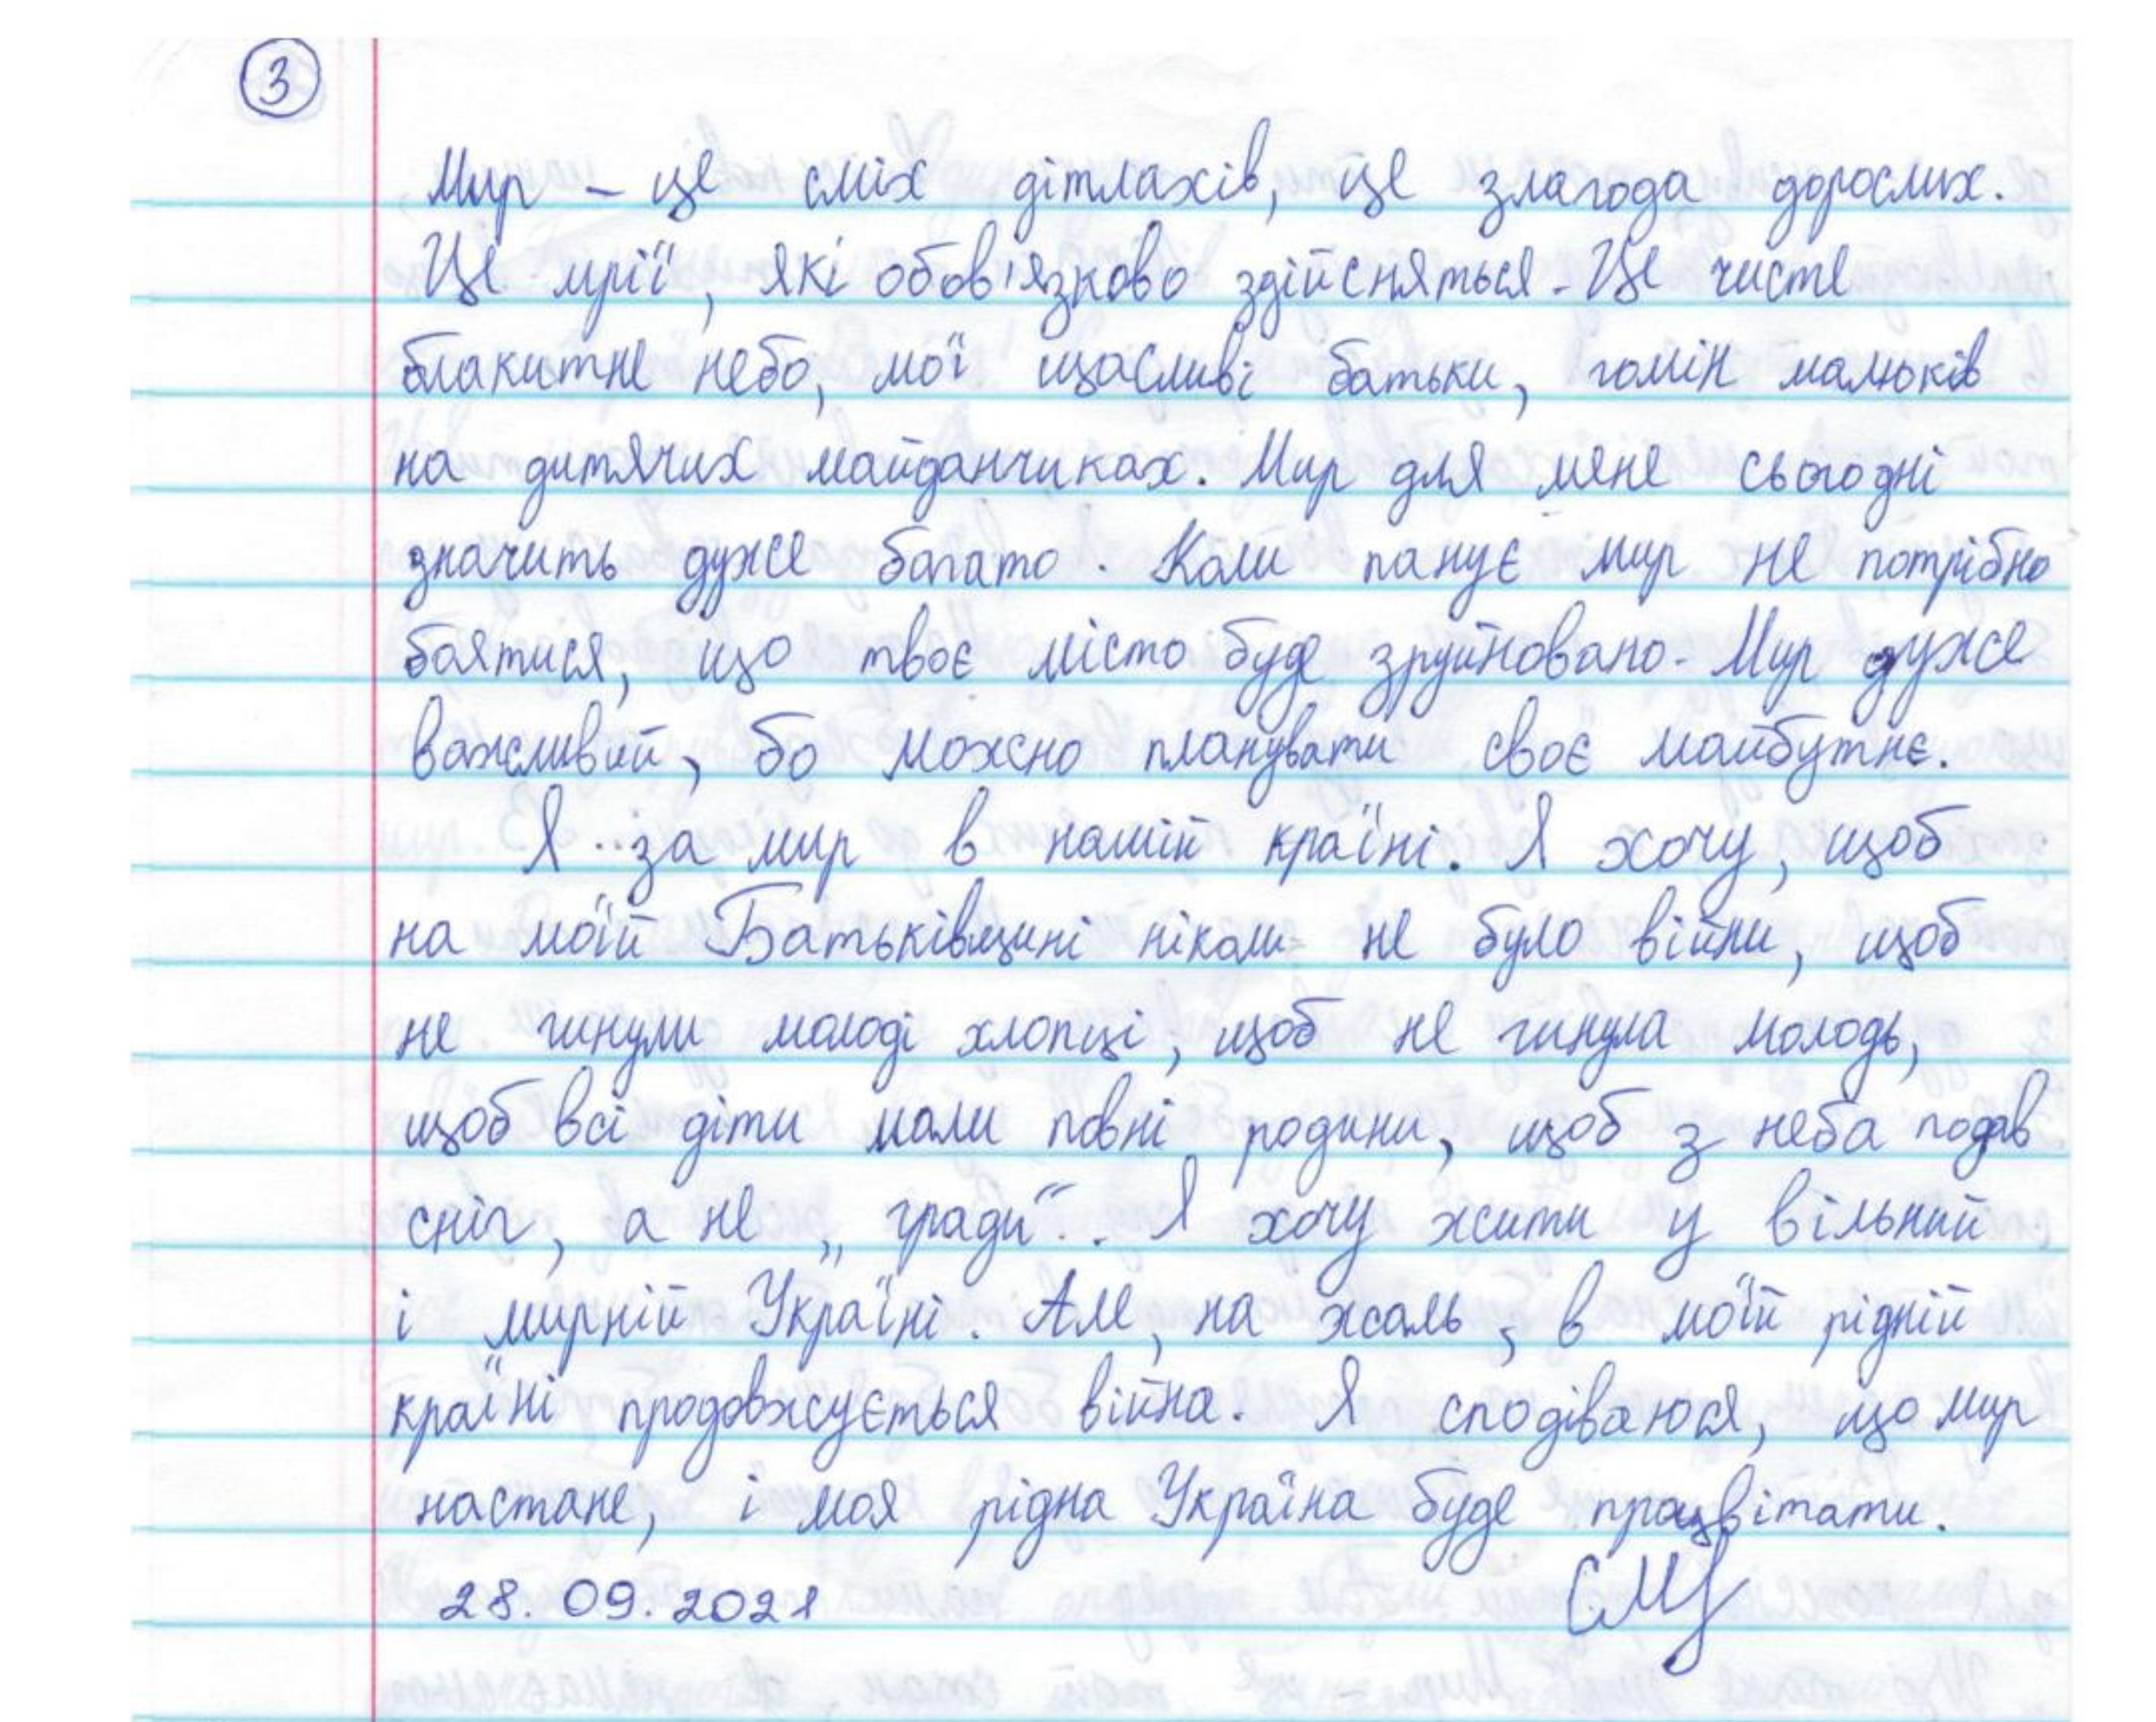 3
Мир - це сміх дітлахів, це злагода дорослих.
Це мрії, які обов'язково здійсняться. Це чисте
блакитне небо, мої щасливі батьки, гомін малюків
на дитячих майданчиках. Мир для мене сьогодні
значить дуже багато. Коли панує мир не потрібно
боятися, що твоє місто буде зруйновано. Мир дуже
важливий, бо можно планувати своє майбутнє.
Я за мир в нашій країні. Я хочу, щоб
на моїй Батьківщині ніколи не було війни, щоб
не гинули молоді хлопці, щоб не гинула молодь,
щоб всі діти мали повні родини, щоб з неба подав
сніг, а не „гради“. Я хочу жити у вільний
і мирній Україні. Але, на жаль, в моїй рідній
країні продовжується війна. Я сподіваюся, що мир
настане, і моя рідна Україна буде працвітати.
28.09.2021